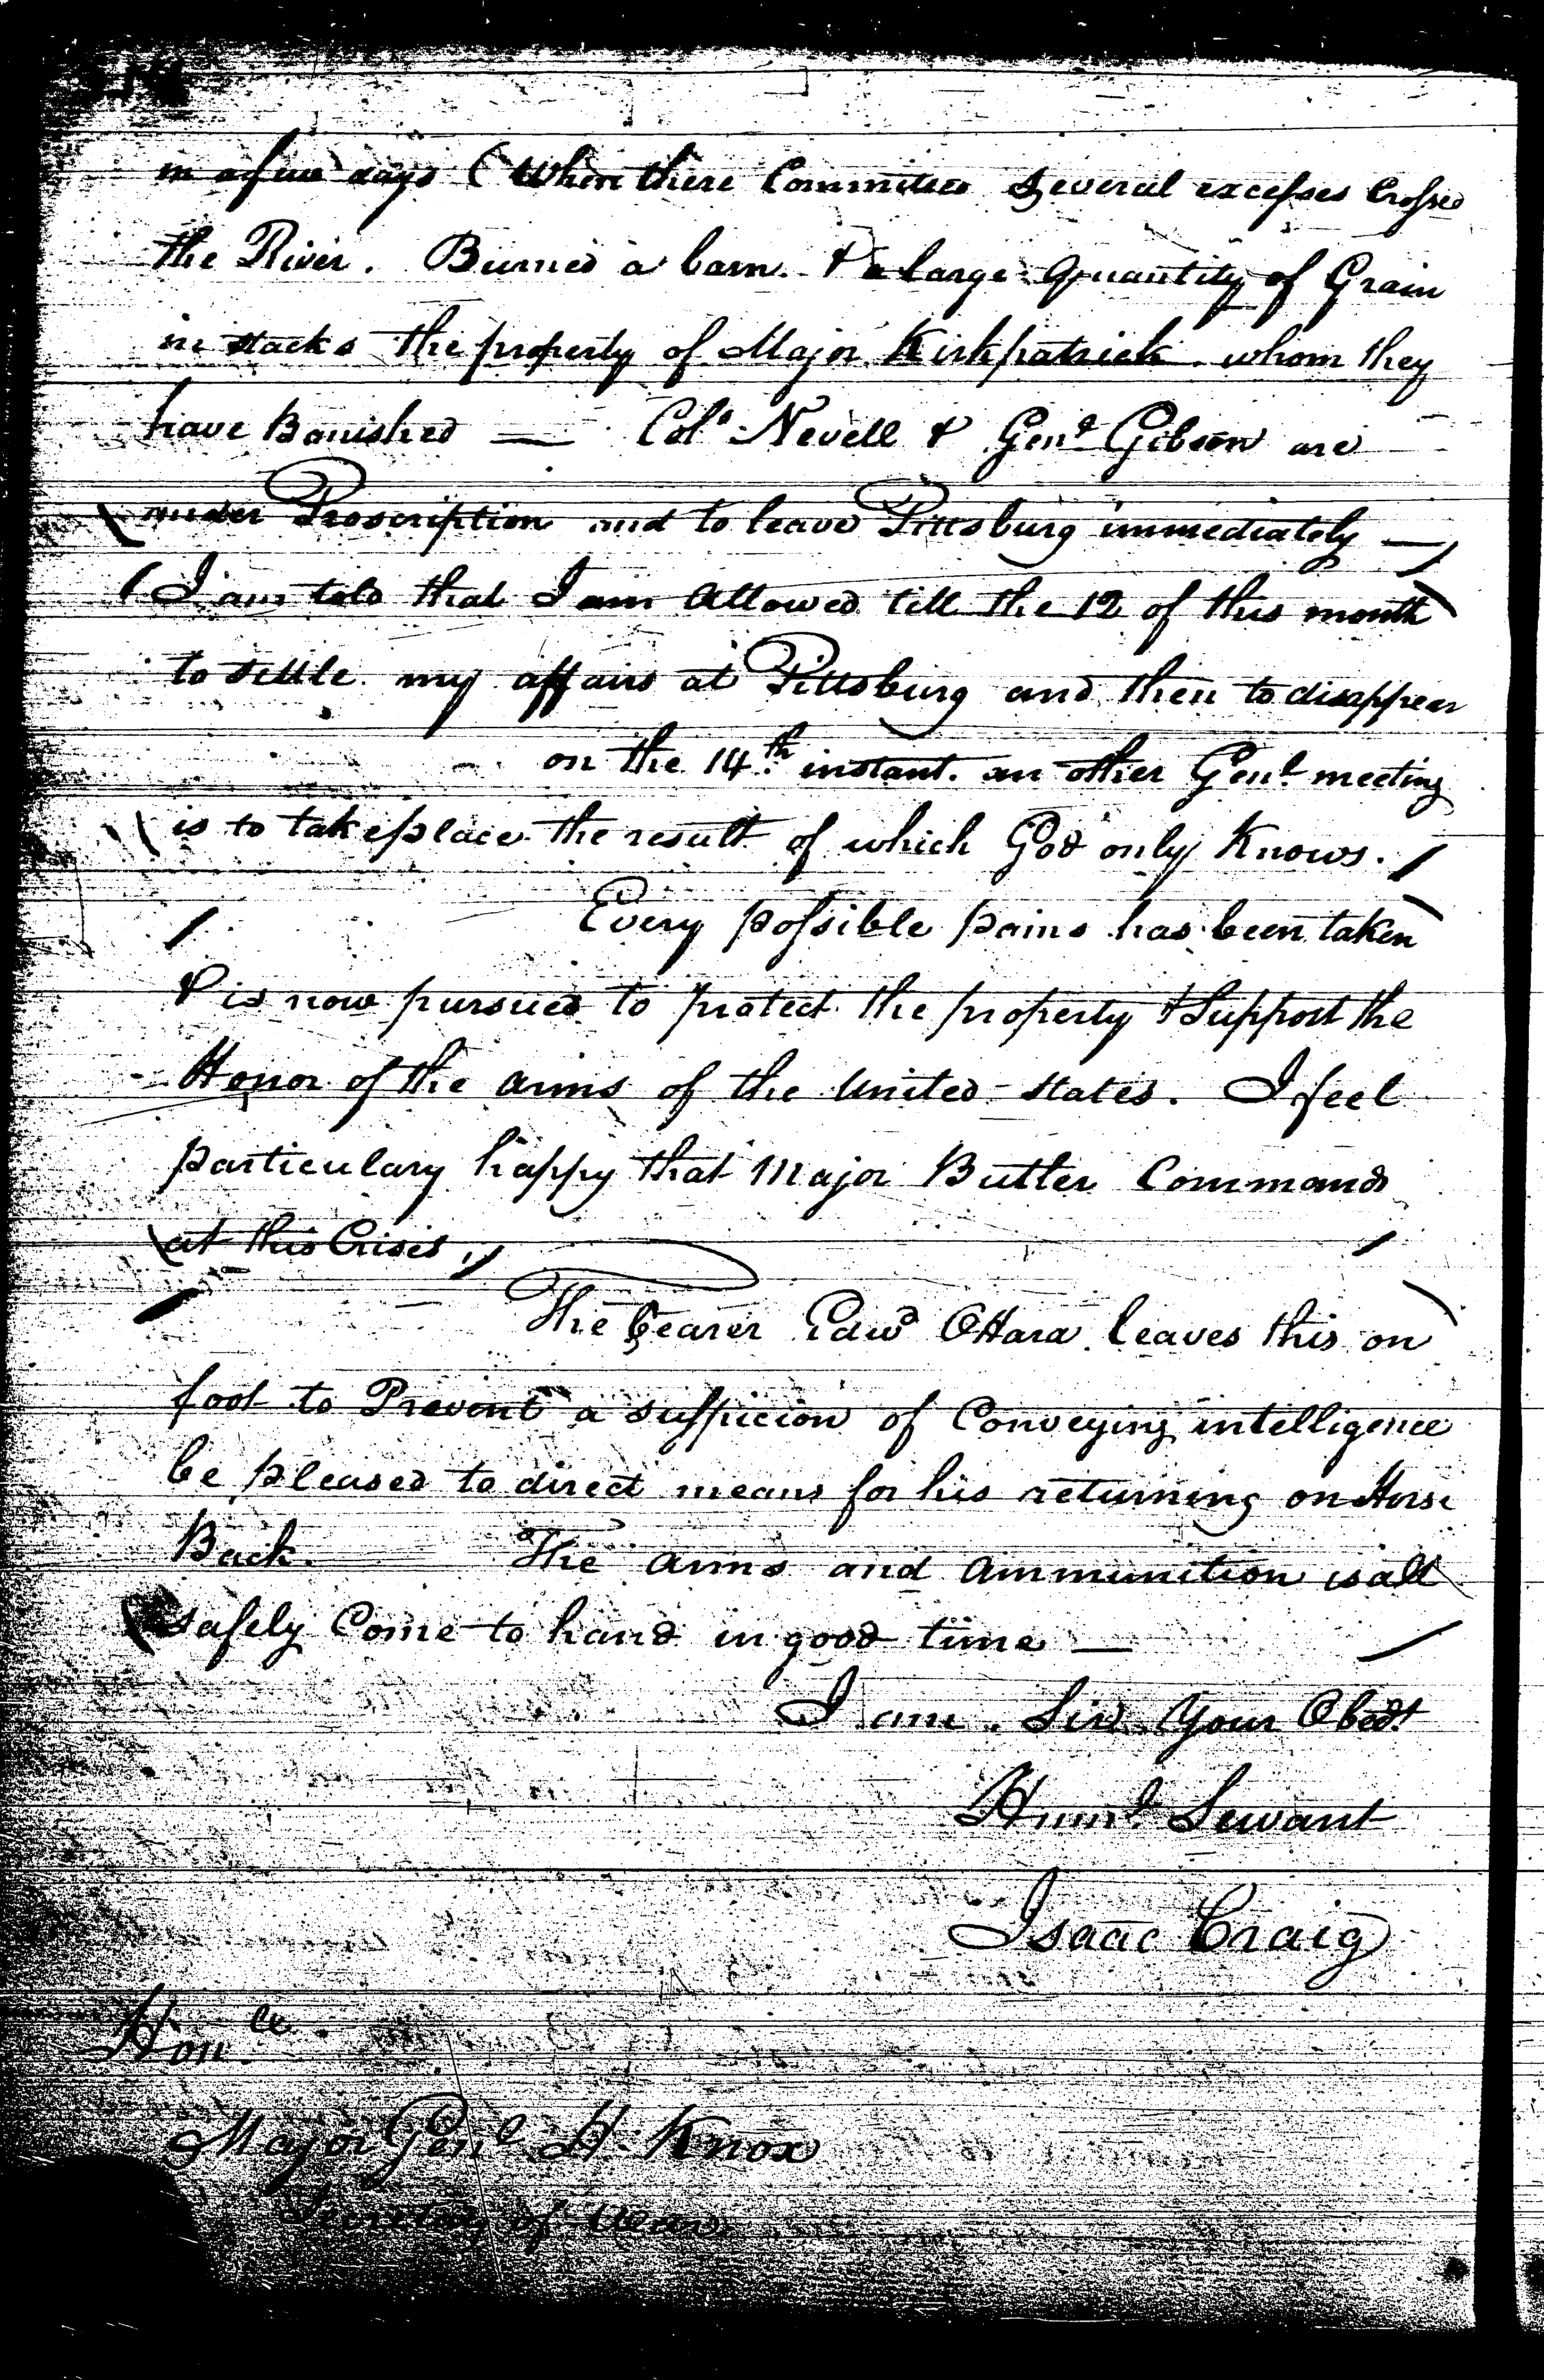 in a few days ( When there Committed Several excesses Crossed
the River. Burned a barn. & a large Quantity of Grain
in stacks the property of Major Kirkpatrick whom they
have Banished — Colo. Nevell & Genl Gibson are
under Proscription and to leave Pittsburg immediately —
(I am told that I am Allowed till the 12 of this month)
to settle my affairs at Pittsburg and then to disappear
on the 14th instant. an other Genl meeting
is to take place the result of which God only Knows.
Every possible pains has been taken
& is now pursued to protect the property & Support the
Honor of the arms of the United States. I feel
particulary happy that Major Butler Commands
at this Crisis
The bearer Edwd OHara leaves this on
foot to Prevent a suspicion of Conveying intelligence
be pleased to direct means for his returning on Horse
Back. The arms and Ammunition is all
safely Come to hand in good time —
I am Sir Your Obedt
Huml Servant
Isaac Craig
Honle
Major Genl H. Knox
Secretary of War